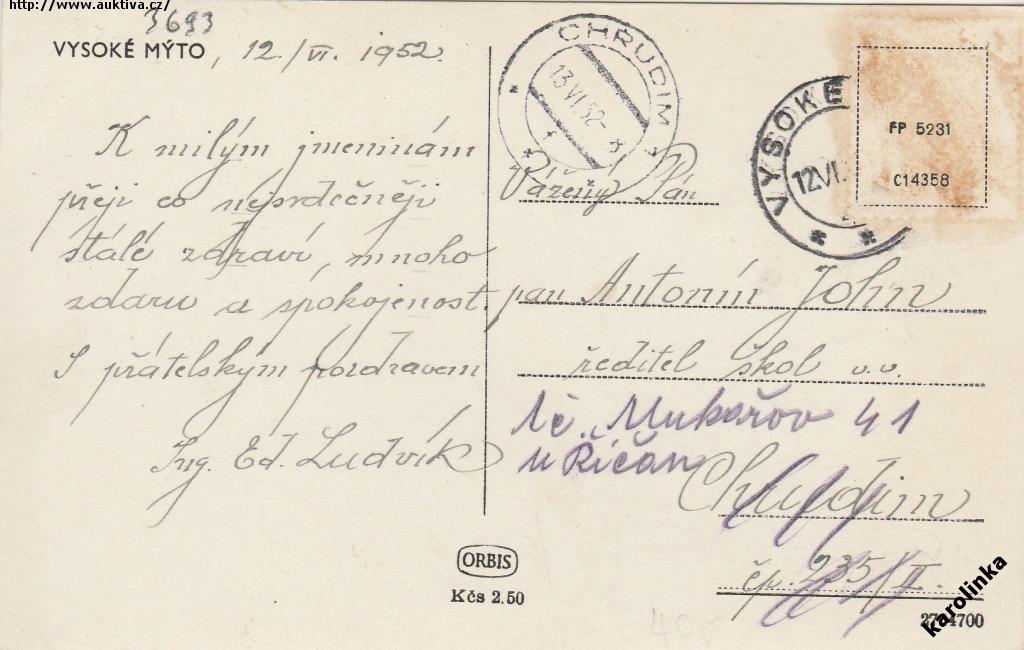 http://www.auktiva.cz/
3693
VYSOKÉ MÝTO, 12./VI. 1952.
K milým jmeninám
přeji co nejsrdečněji
stálé zdraví, mnoho
zdaru a spokojenost.
S přátelským pozdravem
Ing. Ed. Ludvík
CHRUDIM
13 VI 52 - 8
VYSOKÉ
12 VI.
FP 5231
C14358
Vážený Pán
pan Antonín John
ředitel škol v.v.
Mukařov 41
u Říčan
Chrudim
čp. 235/II.
ORBIS
Kčs 2.50
4700
karolinka